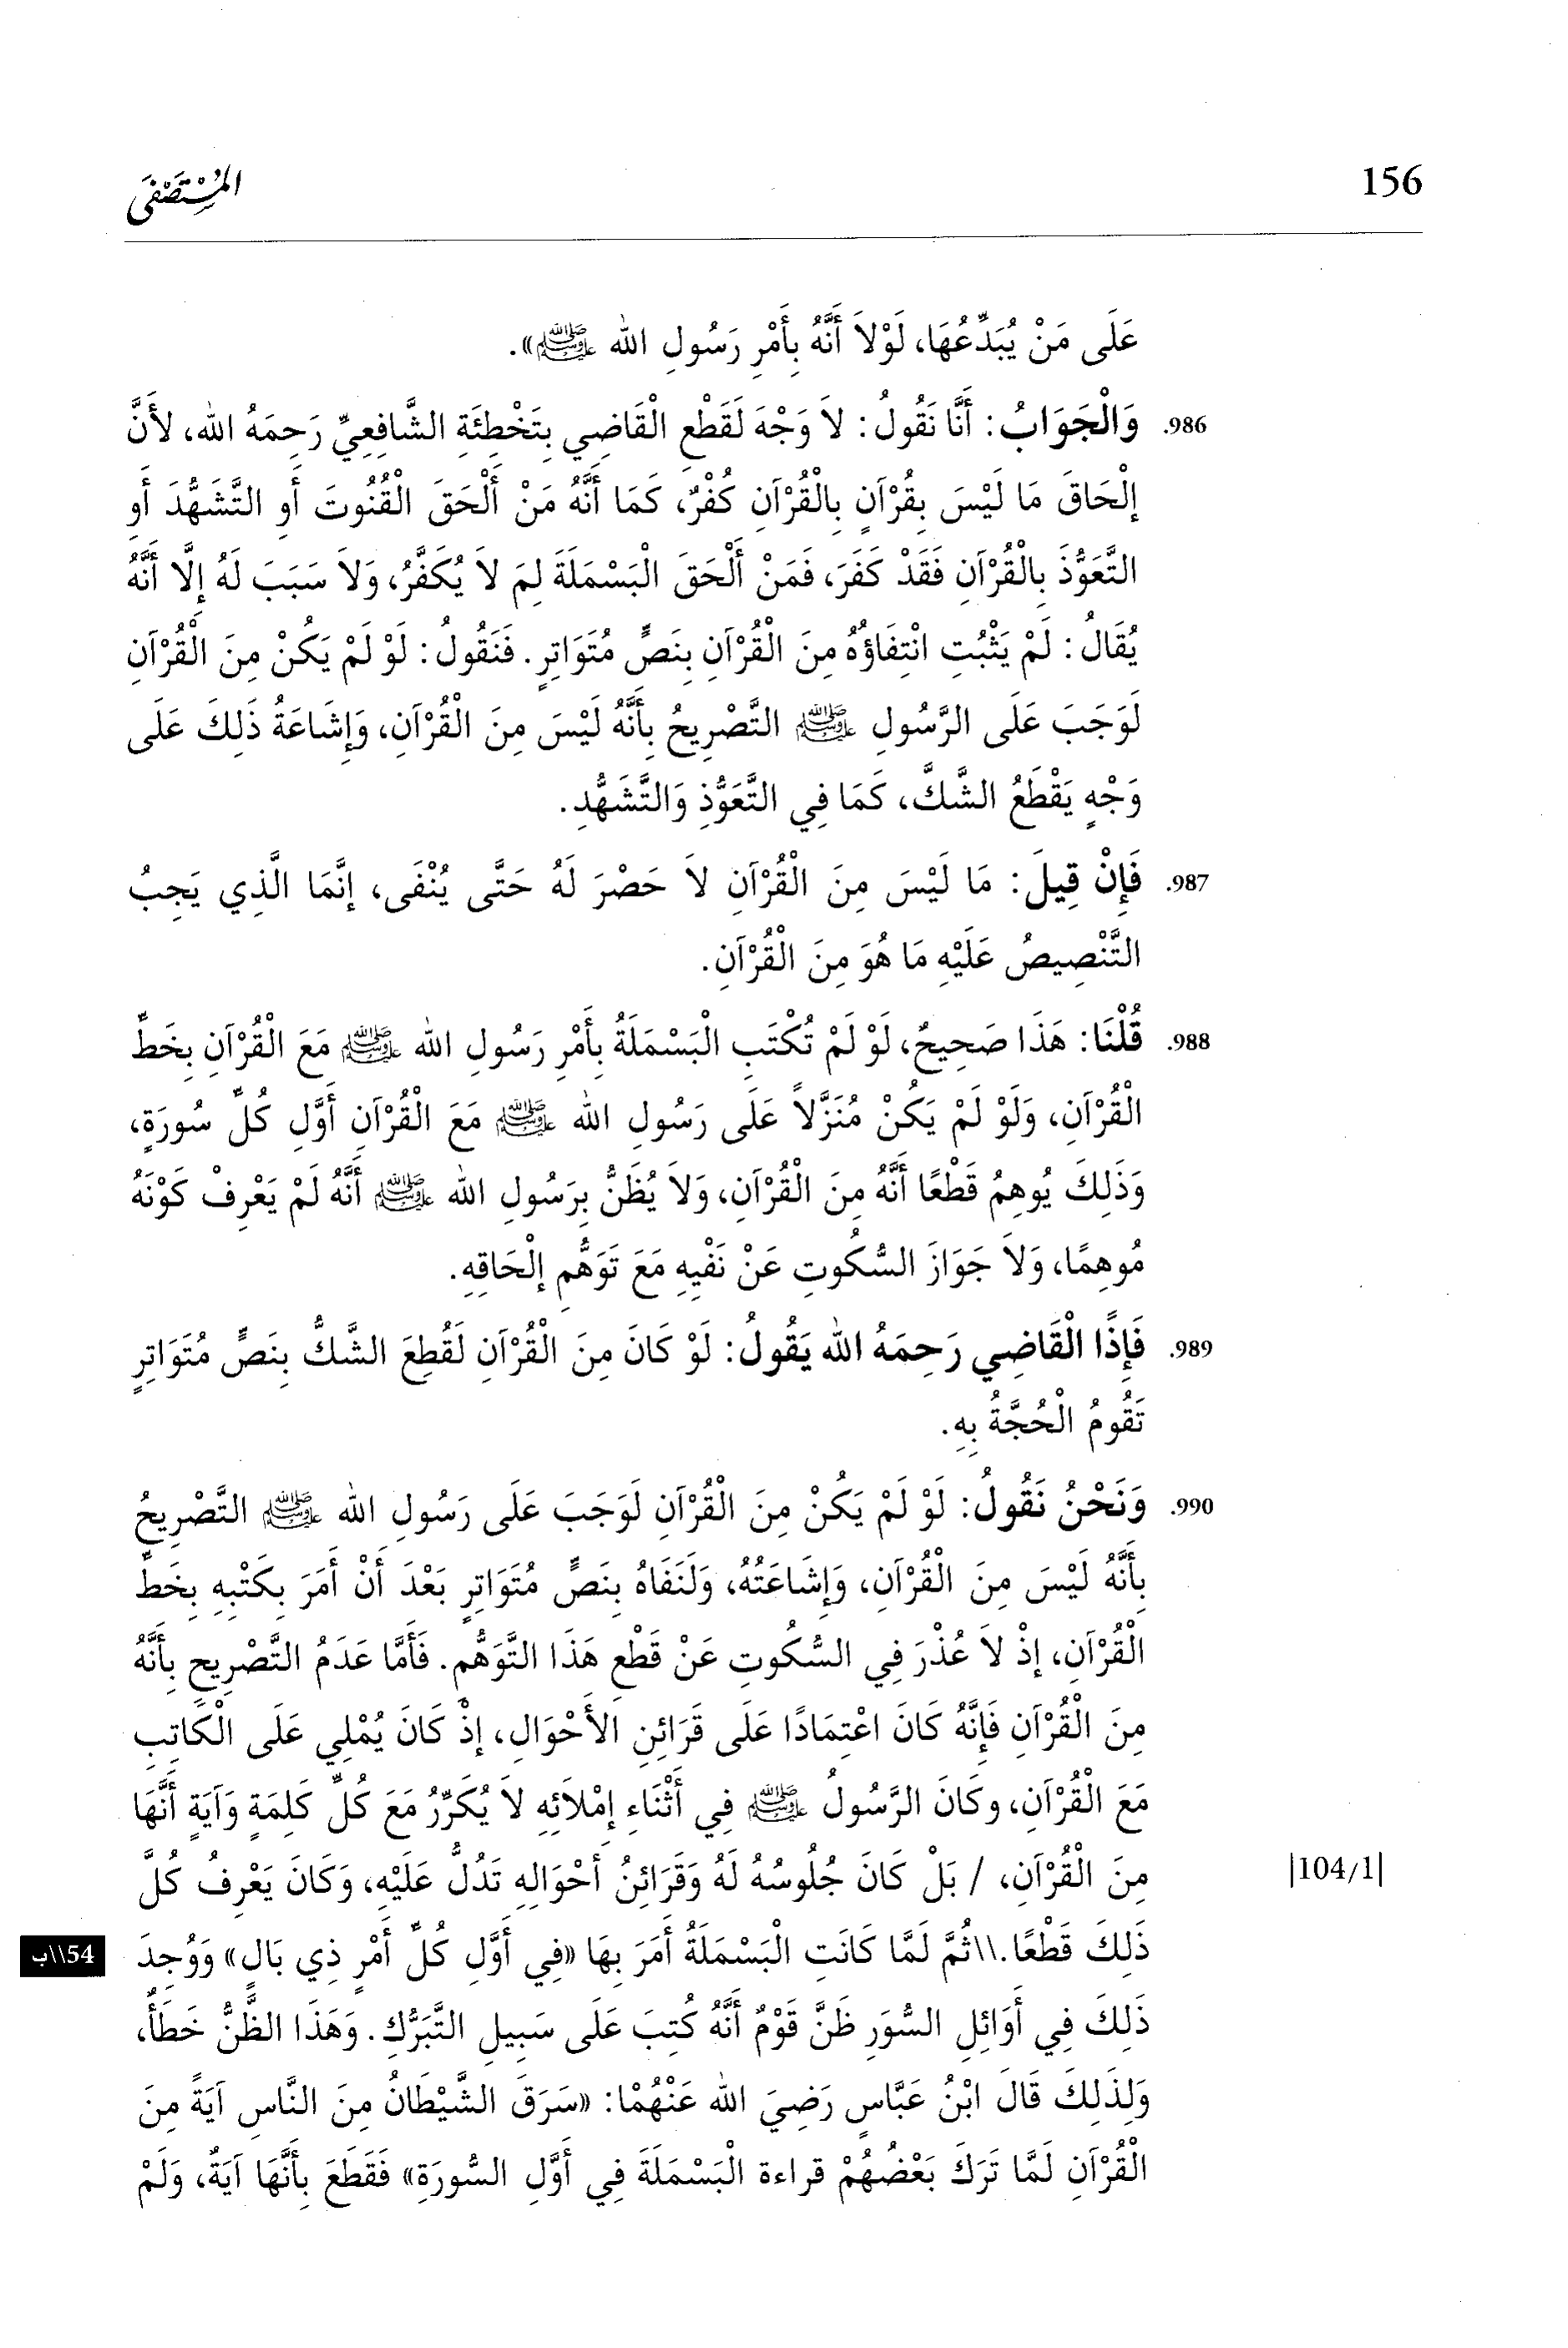 156
المُسْتَصْفَى
عَلَى مَنْ يُبَدِّعُهَا، لَوْلاَ أَنَّهُ بِأَمْرِ رَسُولِ الله ﷺ».
986. وَالْجَوَابُ: أَنَّا نَقُولُ: لاَ وَجْهَ لَقَطْعِ الْقَاضِي بِتَخْطِئَةِ الشَّافِعِيِّ رَحِمَهُ الله، لأَنَّ
إِلْحَاقَ مَا لَيْسَ بِقُرْآنٍ بِالْقُرْآنِ كُفْرٌ، كَمَا أَنَّهُ مَنْ أَلْحَقَ الْقُنُوتَ أَو التَّشَهُّدَ أَوِ
التَّعَوُّذَ بِالْقُرْآنِ فَقَدْ كَفَرَ، فَمَنْ أَلْحَقَ الْبَسْمَلَةَ لِمَ لاَ يُكَفَّرُ، وَلاَ سَبَبَ لَهُ إِلَّا أَنَّهُ
يُقَالُ: لَمْ يَثْبُتِ انْتِفَاؤُهُ مِنَ الْقُرْآنِ بِنَصٍّ مُتَوَاتِرٍ. فَنَقُولُ: لَوْ لَمْ يَكُنْ مِنَ الْقُرْآنِ
لَوَجَبَ عَلَى الرَّسُولِ ﷺ التَّصْرِيحُ بِأَنَّهُ لَيْسَ مِنَ الْقُرْآنِ، وَإِشَاعَةُ ذَلِكَ عَلَى
وَجْهٍ يَقْطَعُ الشَّكَّ، كَمَا فِي التَّعَوُّذِ وَالتَّشَهُّدِ.
987. فَإِنْ قِيلَ: مَا لَيْسَ مِنَ الْقُرْآنِ لاَ حَصْرَ لَهُ حَتَّى يُنْفَى، إِنَّمَا الَّذِي يَجِبُ
التَّنْصِيصُ عَلَيْهِ مَا هُوَ مِنَ الْقُرْآنِ.
988. قُلْنَا: هَذَا صَحِيحٌ، لَوْ لَمْ تُكْتَبِ الْبَسْمَلَةُ بِأَمْرِ رَسُولِ الله ﷺ مَعَ الْقُرْآنِ بِخَطِّ
الْقُرْآنِ، وَلَوْ لَمْ يَكُنْ مُنَزَّلاً عَلَى رَسُولِ الله ﷺ مَعَ الْقُرْآنِ أَوَّلِ كُلِّ سُورَةٍ،
وَذَلِكَ يُوهِمُ قَطْعًا أَنَّهُ مِنَ الْقُرْآنِ، وَلاَ يُظَنُّ بِرَسُولِ الله ﷺ أَنَّهُ لَمْ يَعْرِفْ كَوْنَهُ
مُوهِمًا، وَلاَ جَوَازَ السُّكُوتِ عَنْ نَفْيِهِ مَعَ تَوَهُّمِ إِلْحَاقِهِ.
989. فَإِذًا الْقَاضِي رَحِمَهُ الله يَقُولُ: لَوْ كَانَ مِنَ الْقُرْآنِ لَقُطِعَ الشَّكُّ بِنَصٍّ مُتَوَاتِرٍ
تَقُومُ الْحُجَّةُ بِهِ.
990. وَنَحْنُ نَقُولُ: لَوْ لَمْ يَكُنْ مِنَ الْقُرْآنِ لَوَجَبَ عَلَى رَسُولِ الله ﷺ التَّصْرِيحُ
بِأَنَّهُ لَيْسَ مِنَ الْقُرْآنِ، وَإِشَاعَتُهُ، وَلَنَفَاهُ بِنَصٍّ مُتَوَاتِرٍ بَعْدَ أَنْ أَمَرَ بِكَتْبِهِ بِخَطِّ
الْقُرْآنِ، إِذْ لاَ عُذْرَ فِي السُّكُوتِ عَنْ قَطْعِ هَذَا التَّوَهُّمِ. فَأَمَّا عَدَمُ التَّصْرِيحِ بِأَنَّهُ
مِنَ الْقُرْآنِ فَإِنَّهُ كَانَ اعْتِمَادًا عَلَى قَرَائِنِ الأَحْوَالِ، إِذْ كَانَ يُمْلِي عَلَى الْكَاتِبِ
مَعَ الْقُرْآنِ، وكَانَ الرَّسُولُ ﷺ فِي أَثْنَاءِ إِمْلاَئِهِ لاَ يُكَرِّرُ مَعَ كُلِّ كَلِمَةٍ وَآيَةٍ أَنَّهَا
مِنَ الْقُرْآنِ، / بَلْ كَانَ جُلُوسُهُ لَهُ وَقَرَائِنُ أَحْوَالِهِ تَدُلُّ عَلَيْهِ، وَكَانَ يَعْرِفُ كُلَّ
|104/1|
ذَلِكَ قَطْعًا.\\ثُمَّ لَمَّا كَانَتِ الْبَسْمَلَةُ أَمَرَ بِهَا «فِي أَوَّلِ كُلِّ أَمْرٍ ذِي بَالٍ» وَوُجِدَ
54\\ب
ذَلِكَ فِي أَوَائِلِ السُّوَرِ ظَنَّ قَوْمٌ أَنَّهُ كُتِبَ عَلَى سَبِيلِ التَّبَرُّكِ. وَهَذَا الظَّنُّ خَطَأٌ،
وَلِذَلِكَ قَالَ ابْنُ عَبَّاسٍ رَضِيَ الله عَنْهُمْا: «سَرَقَ الشَّيْطَانُ مِنَ النَّاسِ آيَةً مِنَ
الْقُرْآنِ لَمَّا تَرَكَ بَعْضُهُمْ قراءة الْبَسْمَلَةَ فِي أَوَّلِ السُّورَةِ» فَقَطَعَ بِأَنَّهَا آيَةٌ، وَلَمْ